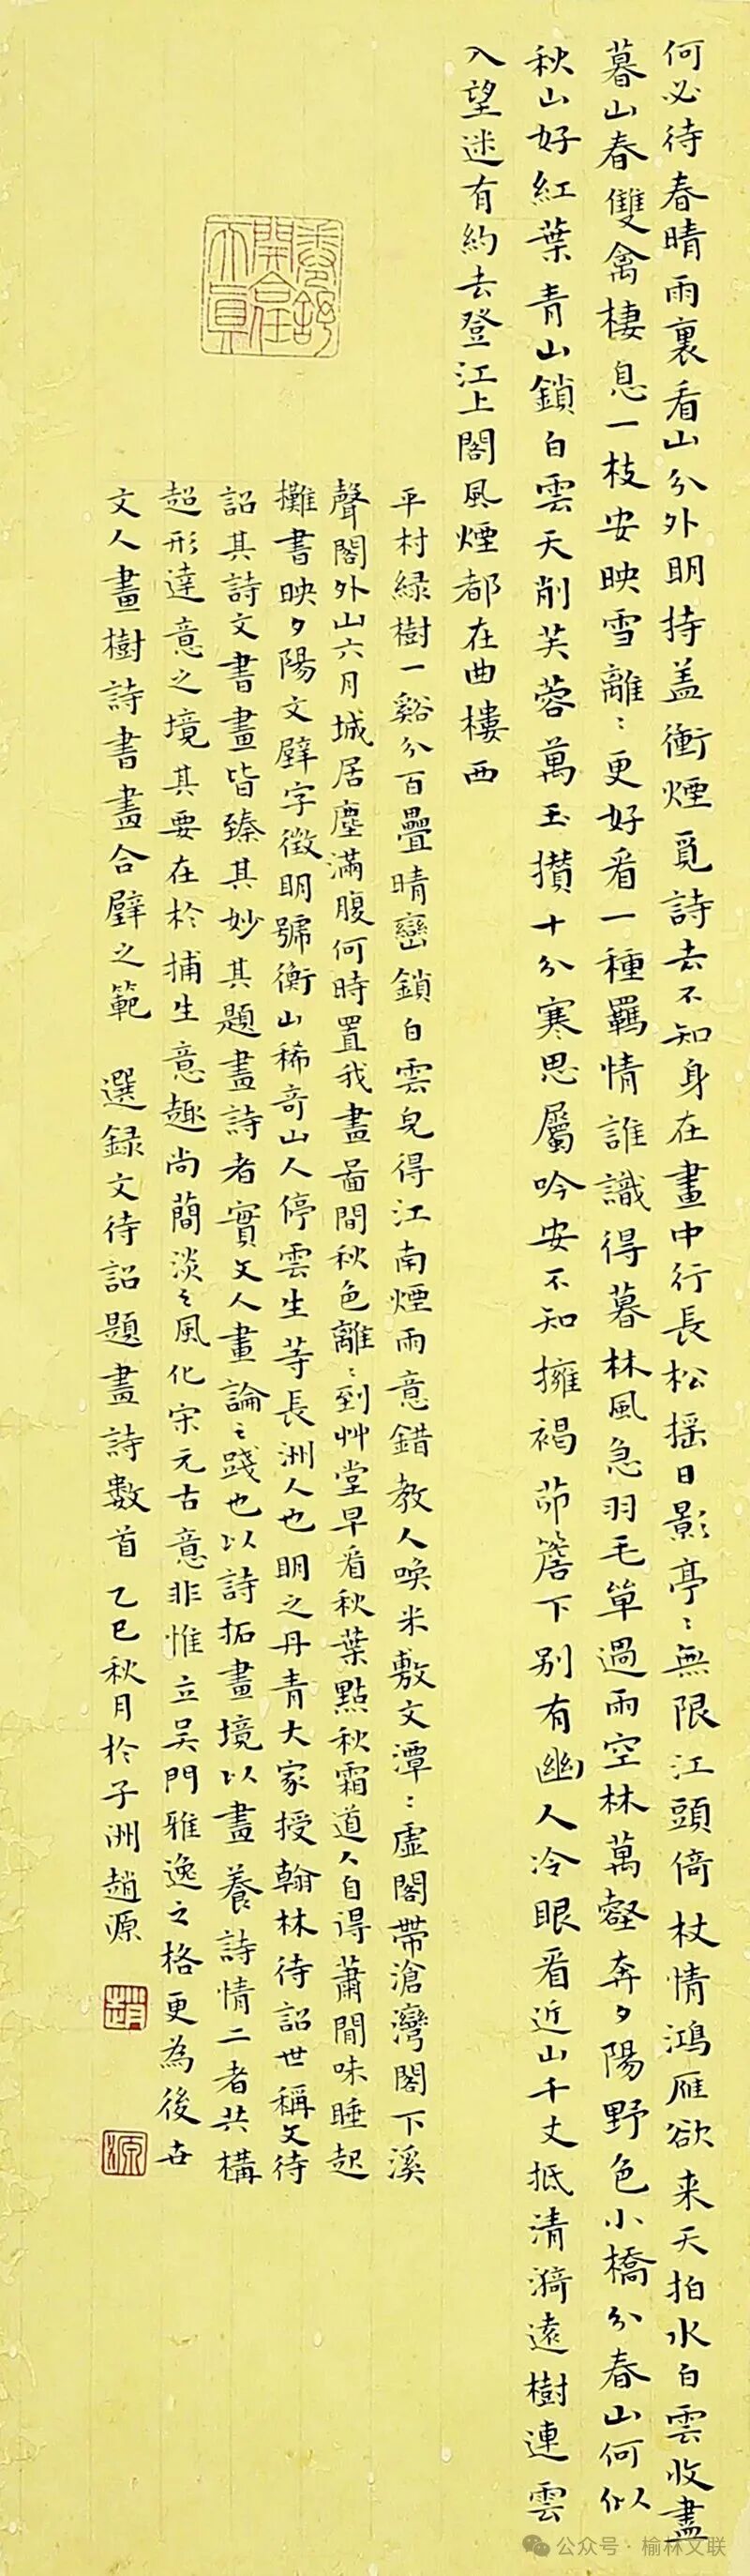 何必待春晴雨裏看山分外明持盖衝煙覓詩去不知身在畫中行長松摇日影亭:無限江頭倚杖情鴻雁欲来天拍水白雲收盡
暮山春雙禽棲息一枝安映雪離:更好看一種羈情誰識得暮林風急羽毛单過雨空林萬壑奔夕陽野色小橋分春山何似
秋山好紅葉青山鎖白雲天削芙蓉萬玉攢十分寒思屬吟安不知擁褐茆簷下别有幽人冷眼看近山千丈抵清漪遠樹連雲
入望迷有約去登江上閣風煙都在曲樓西
平村緑樹一谿分百疊晴巒鎖白雲見得江南煙雨意錯教人唤米敷文潭:虚閣帶滄灣閣下溪
聲閣外山六月城居塵滿腹何時置我畫啚間秋色離:到艸堂早看秋葉點秋霜道人自得蕭閒味睡起
攤書映夕陽文壁字徵明號衡山稀奇山人停雲生等長洲人也明之丹青大家授翰林待詔世稱文待
詔其詩文書畫皆臻其妙其題畫詩者實文人畫論之踐也以詩拓畫境以畫養詩情二者共構
超形達意之境其要在於捕生意趣尚蕳淡之風化宋元古意非惟立吴門雅逸之格更為後世
文人畫樹詩書畫合璧之範 選録文待詔題畫詩數首 乙巳秋月於子洲趙源
趙
源
公众号·榆林文联